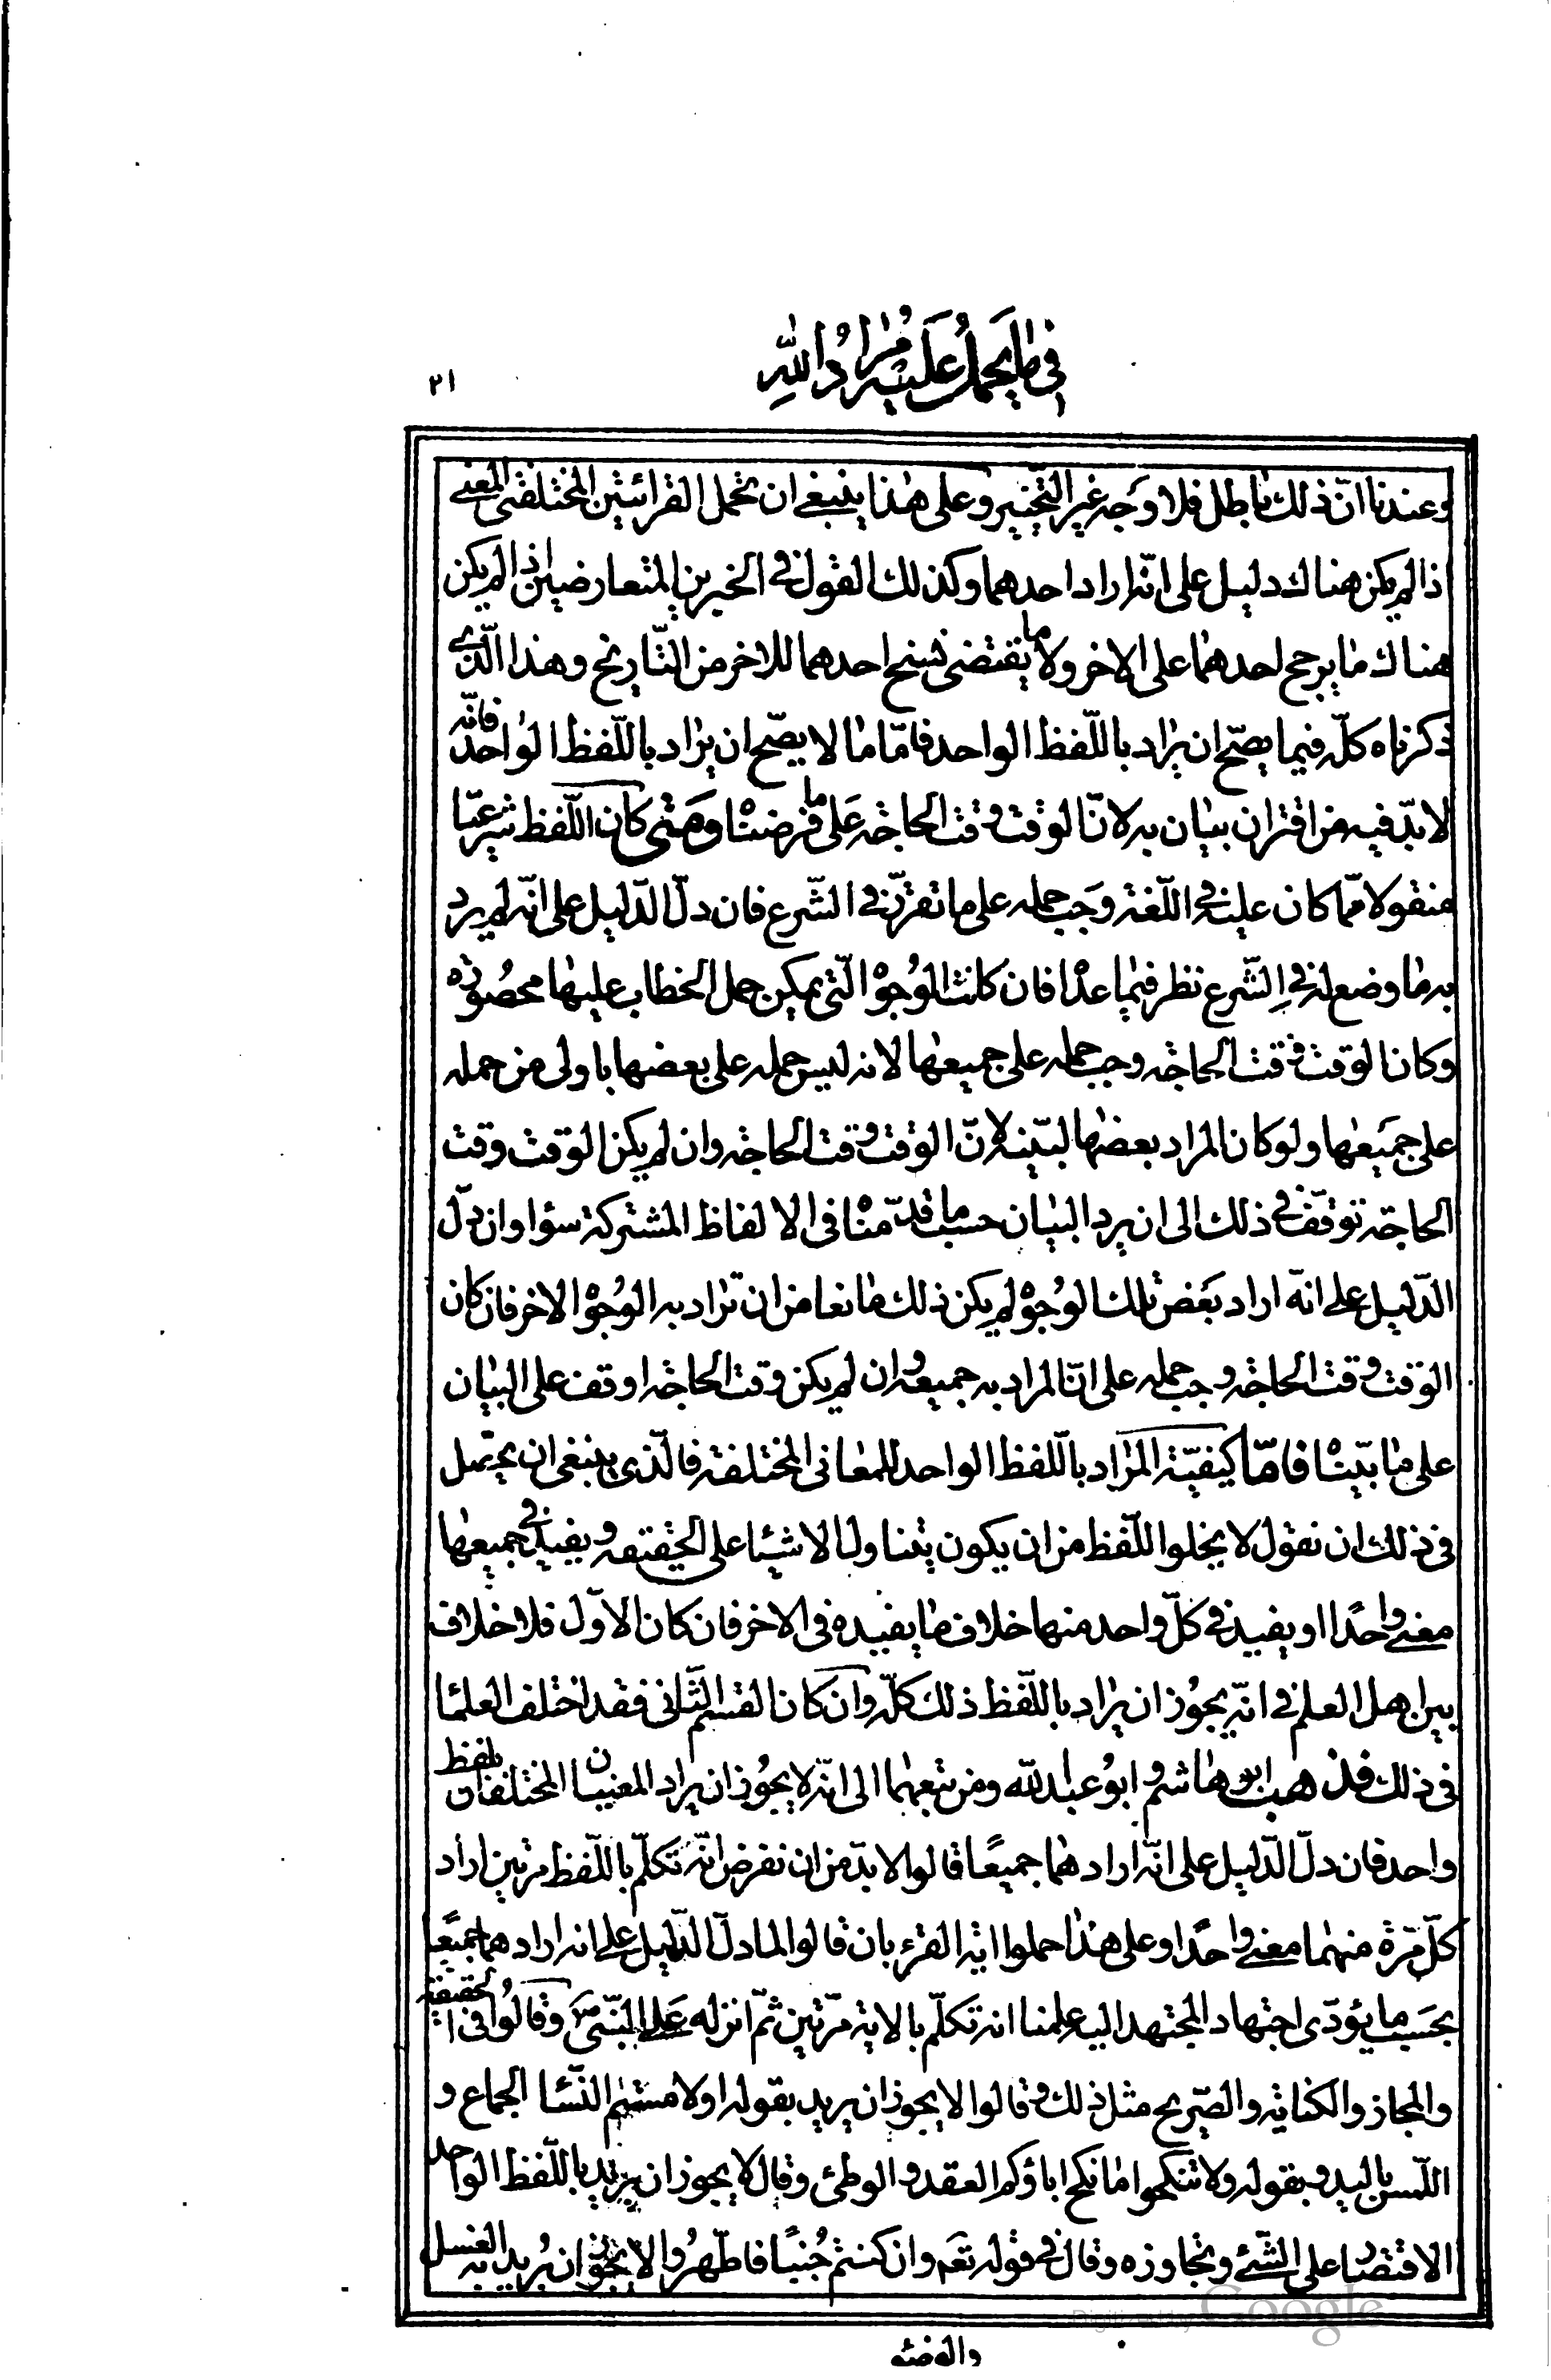 في ما يحمل عليه مراد الله
٢١
وعندنا انّ ذلك باطل فلا وجه غير التّخيير وعلى هذا ينبغي ان تحمل القرائتين المختلفتي المعنى
اذا لم يكن هناك دليل على انّه اراد احدهما وكذلك القول في الخبرين المتعارضين اذا لم يكن
هناك ما يرجح احدهما على الاخر ولا ما يقتضى نسخ احدهما للاخر من التّاريخ وهذا الّذي
ذكرناه كلّه فيما يصحّ ان يراد باللّفظ الواحد فامّا ما لا يصحّ ان يراد باللّفظ الواحد فانّه
لا بدّ فيه من اقتران بيان به لانّ الوقت وقت الحاجة على ما فرضنا ومتى كان اللّفظ شرعيّا
منقولا ممّا كان عليه في اللّغة وجب حمله على ما تقرّر في الشّرع فان دلّ الدّليل على انّه لم يرد
به ما وضع له في الشّرع نظر فيما عداه فان كانت الوجوه الّتي يمكن حمل الخطاب عليها محصورة
وكان الوقت وقت الحاجة وجب حمله على جميعها لانه ليس حمله على بعضها باولى من حمله
على جميعها ولو كان المراد بعضها لبيّنه لانّ الوقت وقت الحاجة وان لم يكن الوقت وقت
الحاجة توقّف في ذلك الى ان يرد البيان حسب ما قدّمناه في الالفاظ المشتركة سواء وان دلّ
الدّليل على انّه اراد بعض تلك الوجوه لم يكن ذلك مانعا من ان تراد به الوجوه الاخر فان كان
الوقت وقت الحاجة وجب حمله على انّ المراد به جميعه وان لم يكن وقت الحاجة اوقف على البيان
على ما بيّنّاه فامّا كيفيّة المراد باللّفظ الواحد للمعاني المختلفة فالّذي ينبغي ان يحصّل
في ذلك ان نقول لا يخلوا اللّفظ من ان يكون يتناول الاشياء على الحقيقة ويفيد في جميعها
معنى واحدًا او يفيد في كلّ واحد منها خلاف ما يفيده في الاخر فان كان الاوّل فلا خلاف
بين اهل العلم في انّه يجوز ان يراد باللّفظ ذلك كلّه وان كان القسم الثّاني فقد اختلف العلماء
في ذلك فذهب ابو هاشم وابو عبد اللّه ومن تبعهما الى انّه لا يجوز ان يراد المعنيان المختلفان بلفظ
واحد فان دلّ الدّليل على انّه اراد هما جميعًا قالوا لا بدّ من ان نفرض انّه تكلّم باللّفظ مرّتين اراد
كلّ مرّة منهما معنى واحدًا وعلى هذا حملوا اية القرء بان قالوا لما دلّ الدّليل على انه اراد هما جميعًا
بحسب ما يؤدّى اجتهاد المجتهد اليه علمنا انه تكلّم بالاية مرّتين ثمّ انزله على النّبيّ ص وقالوا في الحقيقة
والمجاز والكناية والصّريح مثل ذلك وقالوا لا يجوز ان يريد بقوله او لامستم النّساء الجماع و
اللّمس باليد وبقوله ولا تنكحوا ما نكح اباؤكم العقد والوطئ وقال لا يجوز ان يريد باللّفظ الواحد
الاقتصار على الشّئ وتجاوزه وقال في قوله تعم وان كنتم جُنبًا فاطّهرُوا لا يجُوز ان يُريد به الغسل
والوضوء